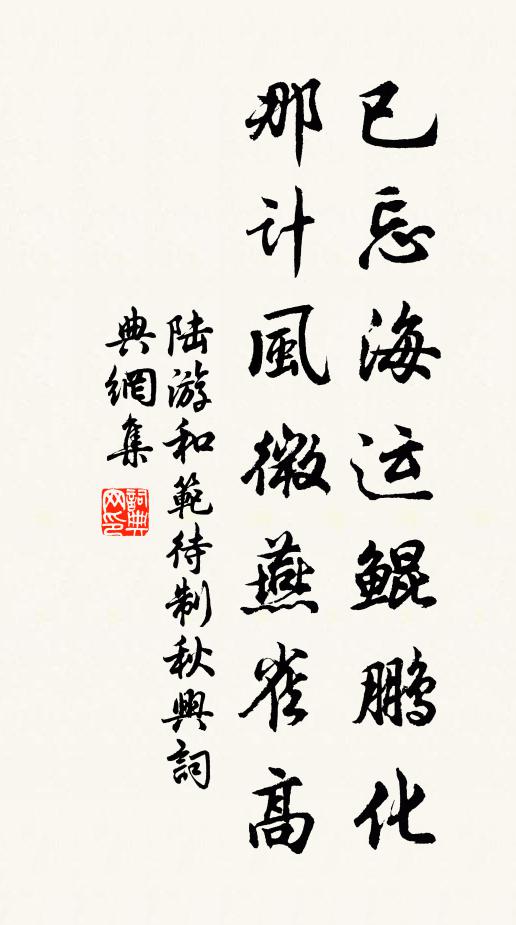 已忘海运鲲鹏化
那计風微燕雀高
陆游和範待制秋興詞
典網集
詞典网印